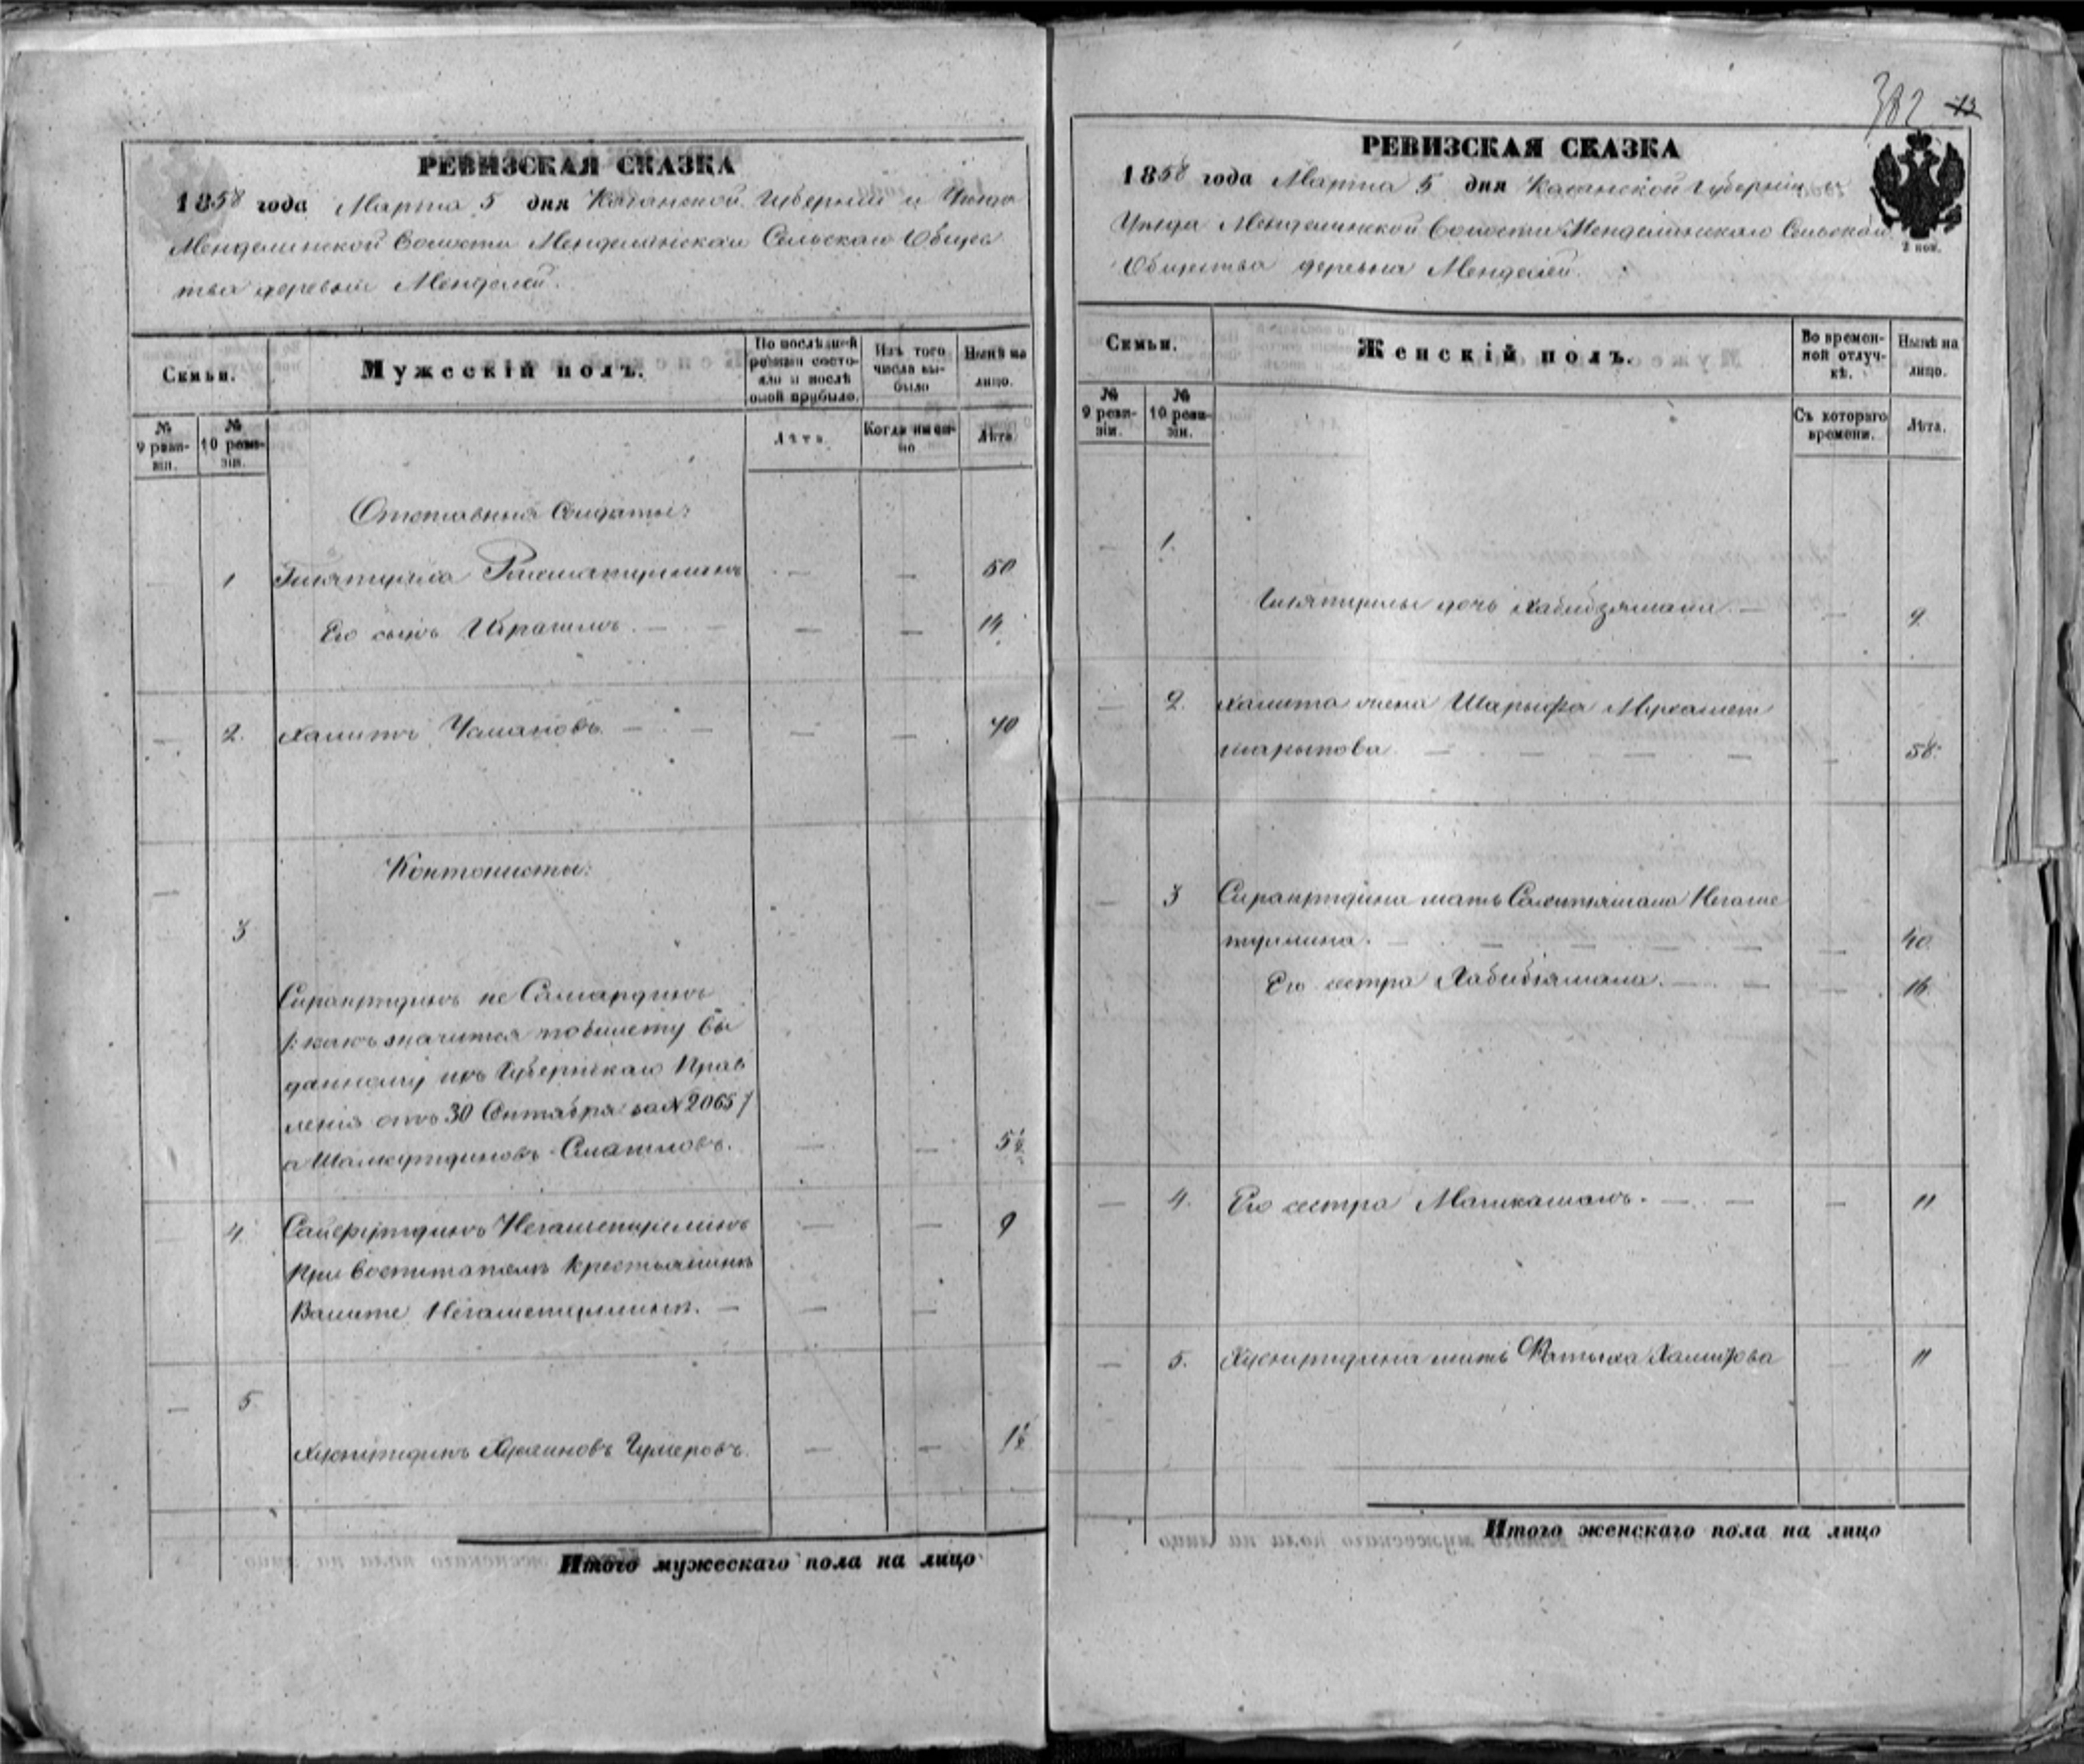 РЕВИЗСКАЯ СКАЗКА
1858 года Марта 5 дня Казанской Губерніи и Уезда
Менделинской Волости Менделинскаго Сельскаго Общес
тва деревни Менделей.
Семьи.
Мужескій полъ.
По послѣдней ревизіи состо-яло и послѣ оной прибыло.
Изъ того числа вы-было
Нынѣ на лицо.
№ 9 реви-зіи.
№ 10 реви-зіи.
Лѣта
Когда имен-но
Лѣта
Отставныя Солдаты:
1 50
Его сынъ Ибрагимъ 14
2. Хамитъ Усмановъ 40
Контонисты:
3
не
какъ значится по билету вы
данному изъ Губернскаго Прав
ленія отъ 30 Сентября за № 2065
а 5½
4. Сайфутдинъ Негаметуллинъ 9
При воспитателѣ крестьянинѣ
Валите Негаметуллинѣ.
5
Хуснутдинъ Гумеровъ. 1½
Итого мужескаго пола на лицо
382 13
РЕВИЗСКАЯ СКАЗКА
1858 года Марта 5 дня Казанской Губерніи и
Уезда Менделинской Волости Менделинскаго Сельскаго
Общества деревни Менделей.
2 коп.
Семьи.
Женскій полъ.
Во времен-ной отлуч-кѣ.
Нынѣ на лицо.
№ 9 реви-зіи.
№ 10 реви-зіи.
Съ котораго времени.
Лѣта.
1.
дочь Хабибзямала 9
2. Хамита жена Шарыфа Мухамет
шарыпова 58
3 мать Негаме
туллина. 40
Его сестра Хабибзямала. 16
4. Его сестра 11
5. Хуснутдина мать Фатыха 11
Итого женскаго пола на лицо